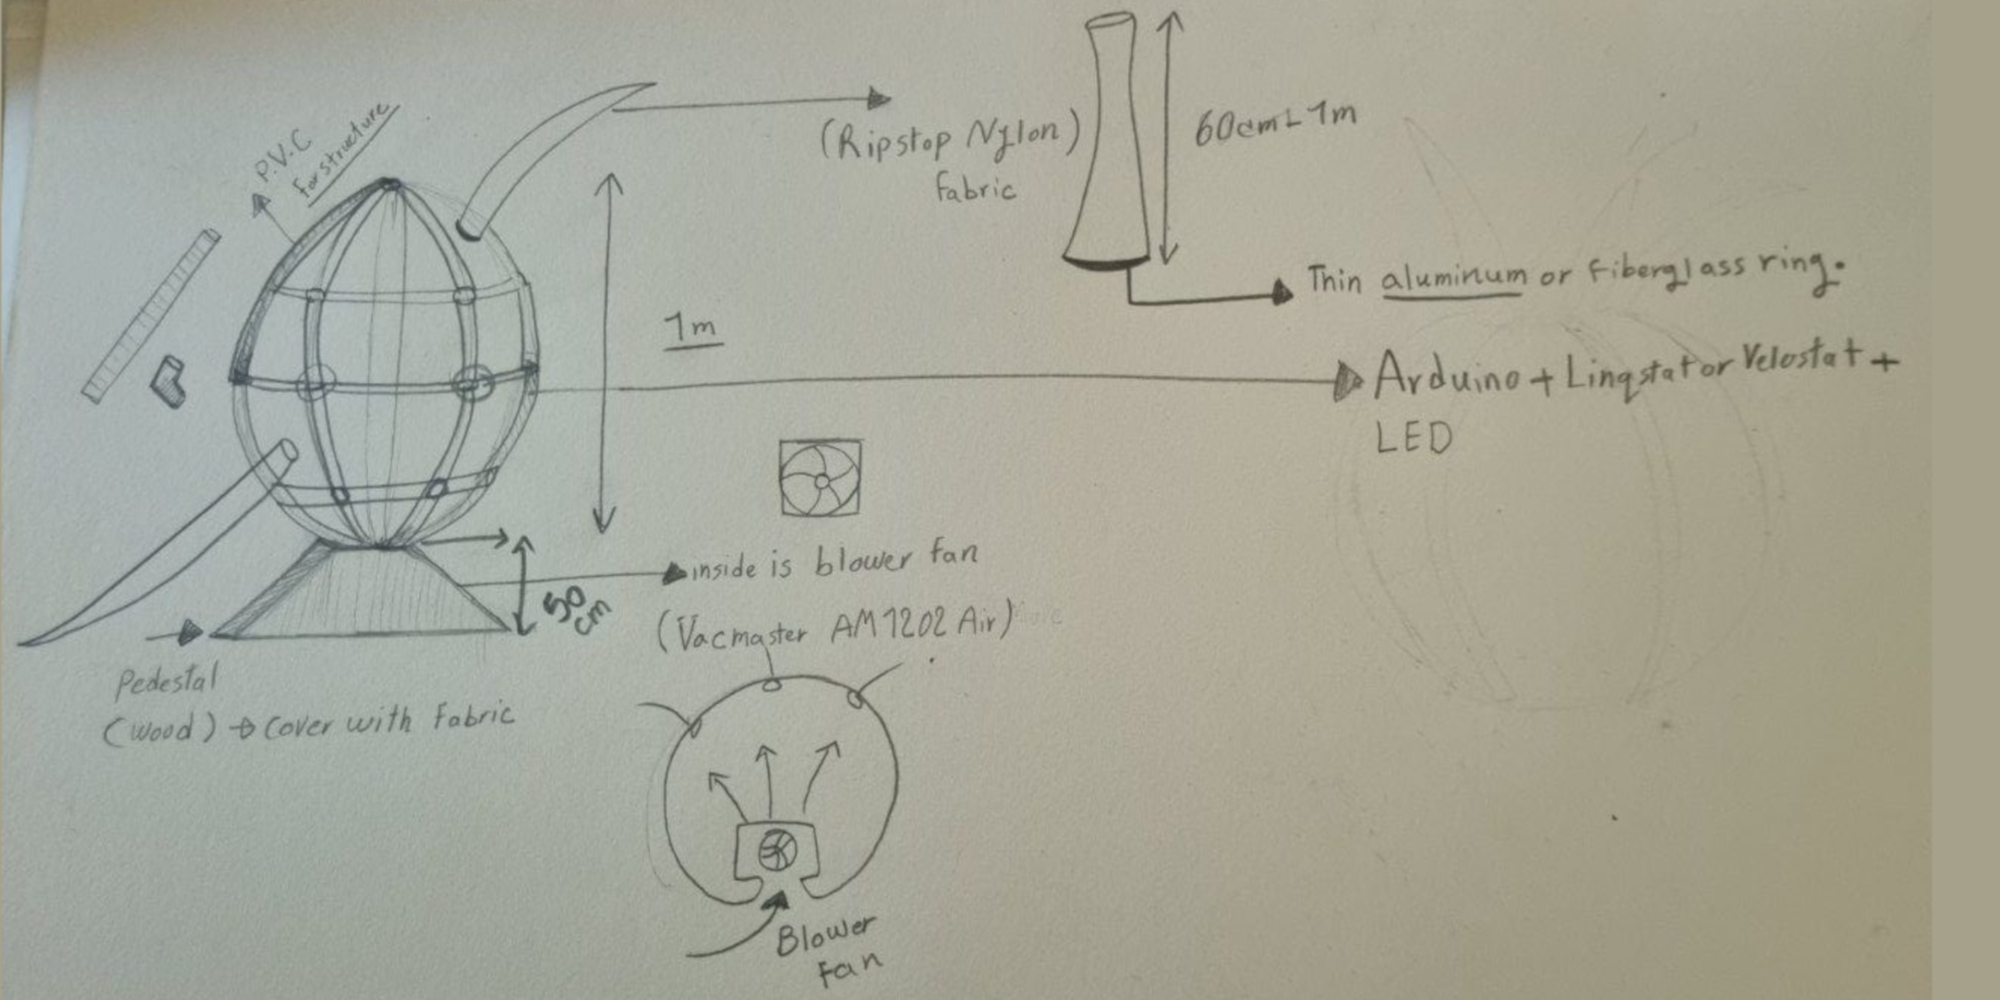 P.V.C
for structure
(Ripstop Nylon)
fabric
60cm - 1m
Thin aluminum or fiberglass ring.
1m
Arduino + Linqstat or Velostat +
LED
inside is blower fan
50
cm
(Vacmaster AM1202 Air)
Pedestal
(wood) → Cover with Fabric
Blower
fan